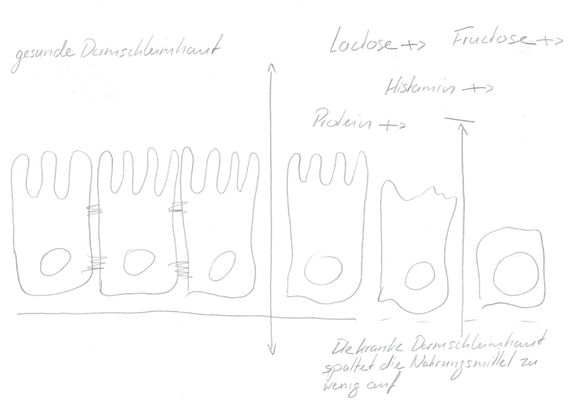 gesunde Darmschleimhaut
Lactose +> Fructose +>
Histamin +>
Protein +>
Die kranke Darmschleimhaut
spaltet die Nahrungsmittel zu
wenig auf